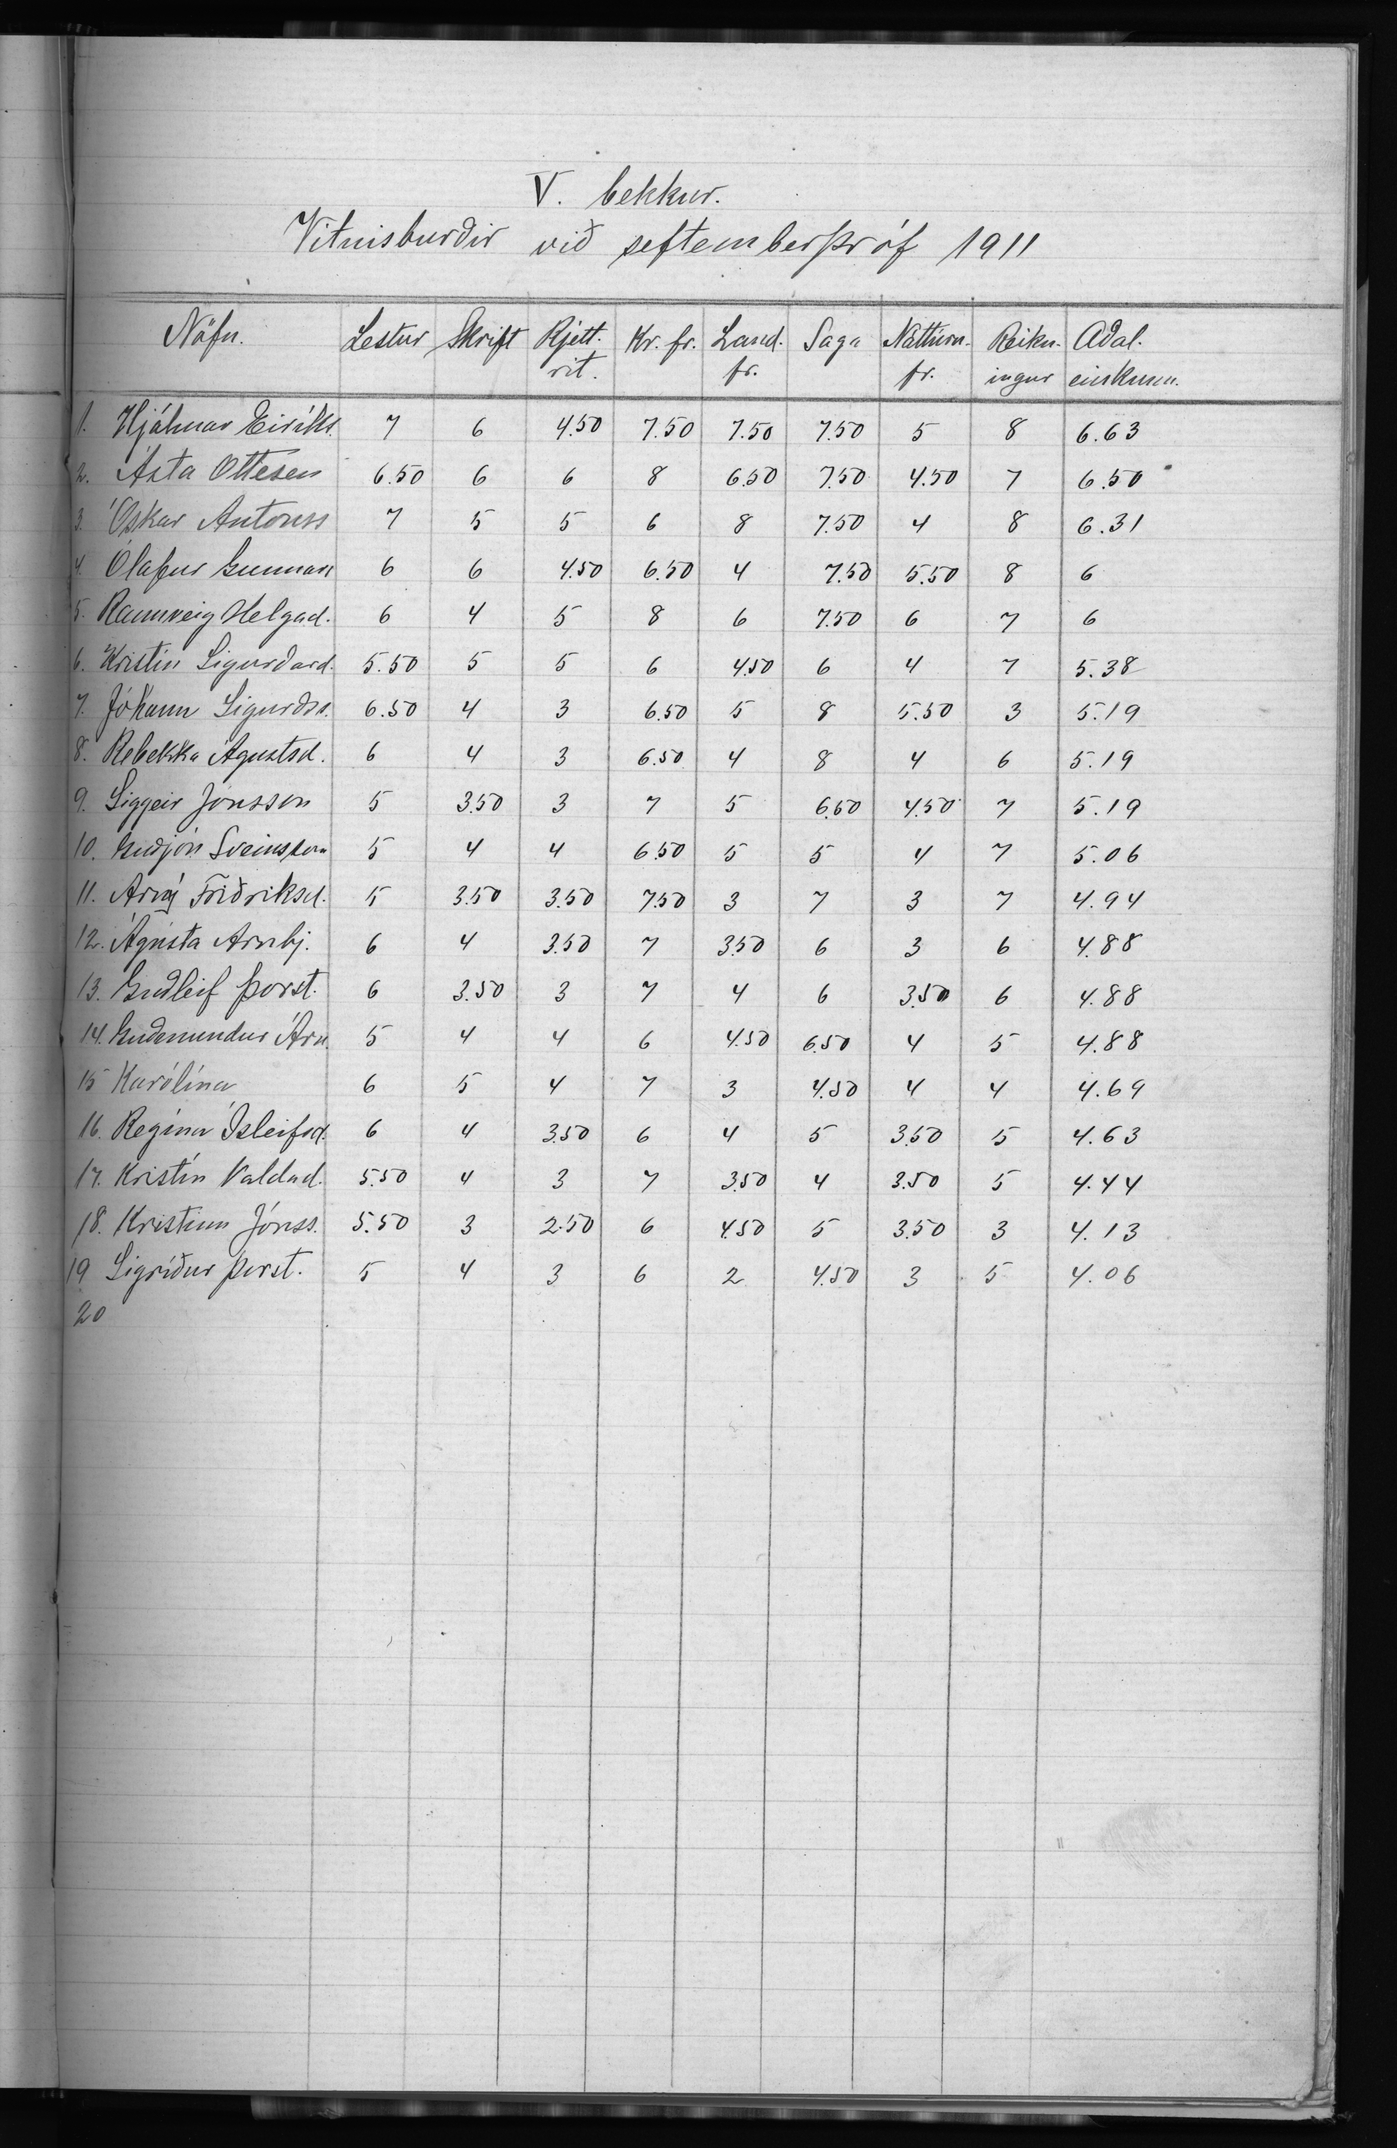 V. bekkur.
Vitnisburðir við septemberpróf 1911
Nöfn. Lestur Skrift Rjett.rit. Kr. fr. Land.fr. Saga Nattúru.fr. Reikningur Aðal.einkunn.
1. Hjálmar Eiríkss. 7 6 4.50 7.50 7.50 7.50 5 8 6.63
2. Ásta Ottesen 6.50 6 6 8 6.50 7.50 4.50 7 6.50
3. Óskar Antonss 7 5 5 6 8 7.50 4 8 6.31
4. Ólafur Gunnars 6 6 4.50 6.50 4 7.50 5.50 8 6
5. Rannveig Helgad. 6 4 5 8 6 7.50 6 7 6
6. Kristín Sigurðard. 5.50 5 5 6 4.50 6 4 7 5.38
7. Jóhann Sigurðss. 6.50 4 3 6.50 5 8 5.50 3 5.19
8. Rebekka Ágústsd. 6 4 3 6.50 4 8 4 6 5.19
9. Siggeir Jónsson 5 3.50 3 7 5 6.50 4.50 7 5.19
10. Guðjón Sveinsson 5 4 4 6.50 5 5 4 7 5.06
11. Árný Friðriksd. 5 3.50 3.50 7.50 3 7 3 7 4.94
12. Ágústa Arnbj. 6 4 3.50 7 3.50 6 3 6 4.88
13. Guðleif Þorst. 6 3.50 3 7 4 6 3.50 6 4.88
14. Guðmundur Árn. 5 4 4 6 4.50 6.50 4 5 4.88
15 Karólína 6 5 4 7 3 4.50 4 4 4.69
16. Regína Ísleifsd. 6 4 3.50 6 4 5 3.50 5 4.63
17. Kristín Valdad. 5.50 4 3 7 3.50 4 3.50 5 4.44
18. Kristinn Jónss. 5.50 3 2.50 6 4.50 5 3.50 3 4.13
19 Sigríður Þorst. 5 4 3 6 2 4.50 3 5 4.06
20